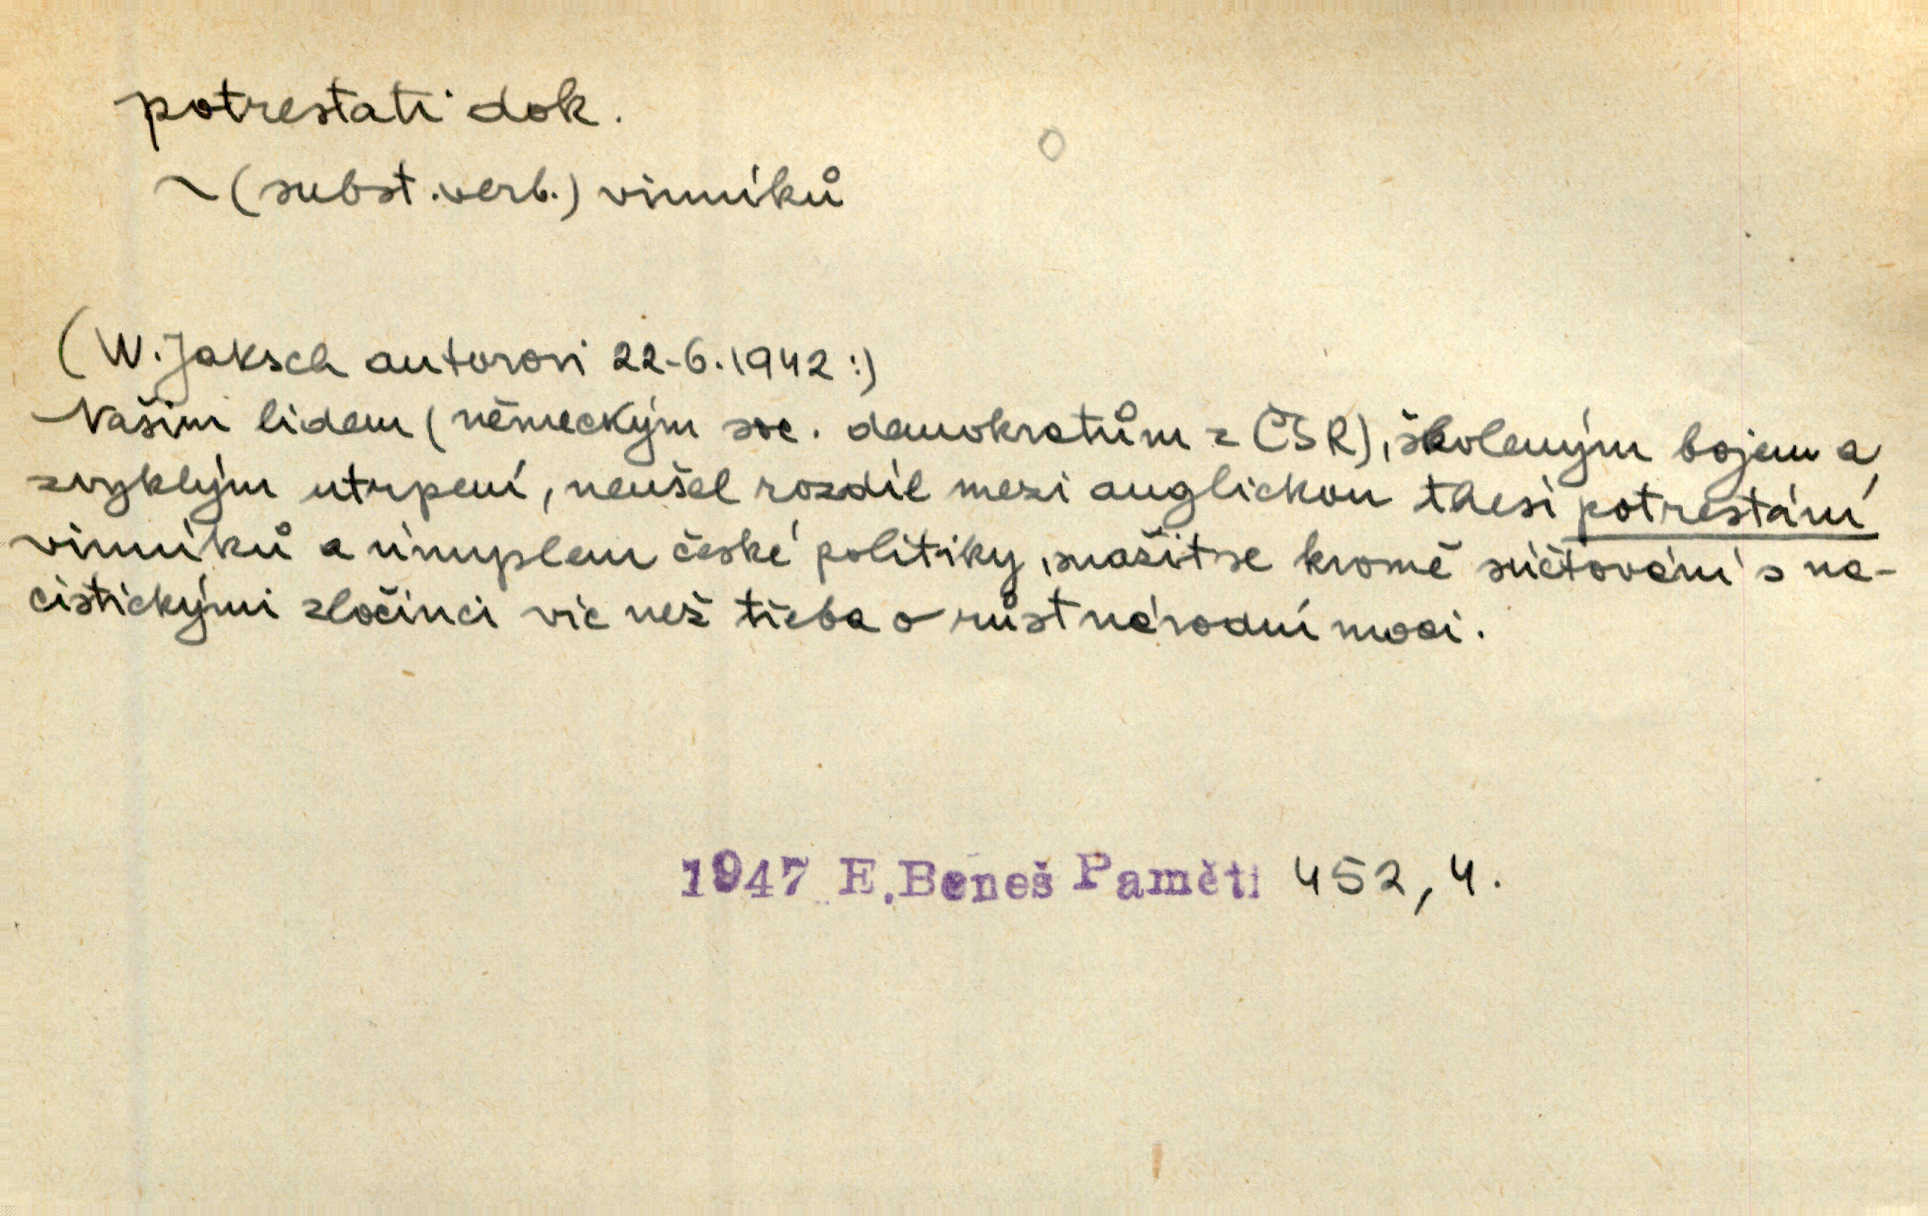 potrestati dok.
~ (subst. verb.) vinníků
(W. Jaksch autorovi 22.6.1942:)
Našim lidem (německým soc. demokratům z ČSR), školeným bojem a
zvyklým utrpení, neušel rozdíl mezi anglickou thesí potrestání
vinníků a úmyslem české politiky, snažit se kromě súčtování s na-
cistickými zločinci víc než třeba o růst národní moci.
1947 E. Beneš Paměti 452, 4.